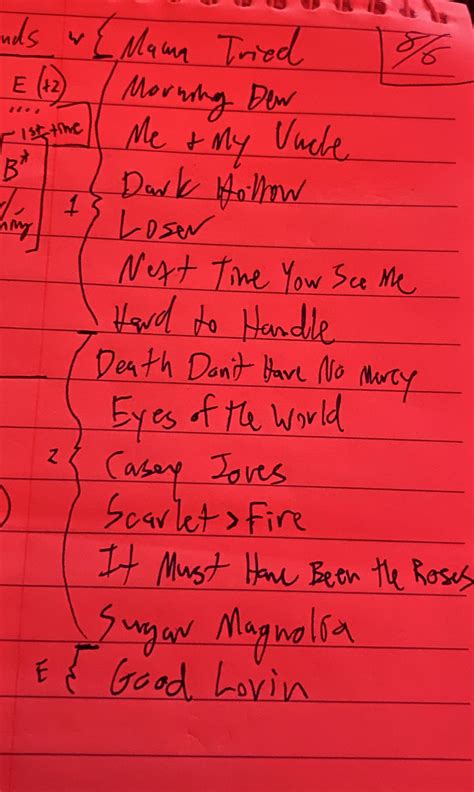 nds w { Mama Tried 8/8
E (+2) Morning Dew
1st time
Me + My Uncle
B*
Dark Hollow
1
Loser
Next Time You See Me
Hard to Handle
Death Don't Have No Mercy
Eyes of the World
2 Casey Jones
Scarlet > Fire
It Must Have Been the Roses
Sugar Magnolia
E { Good Lovin